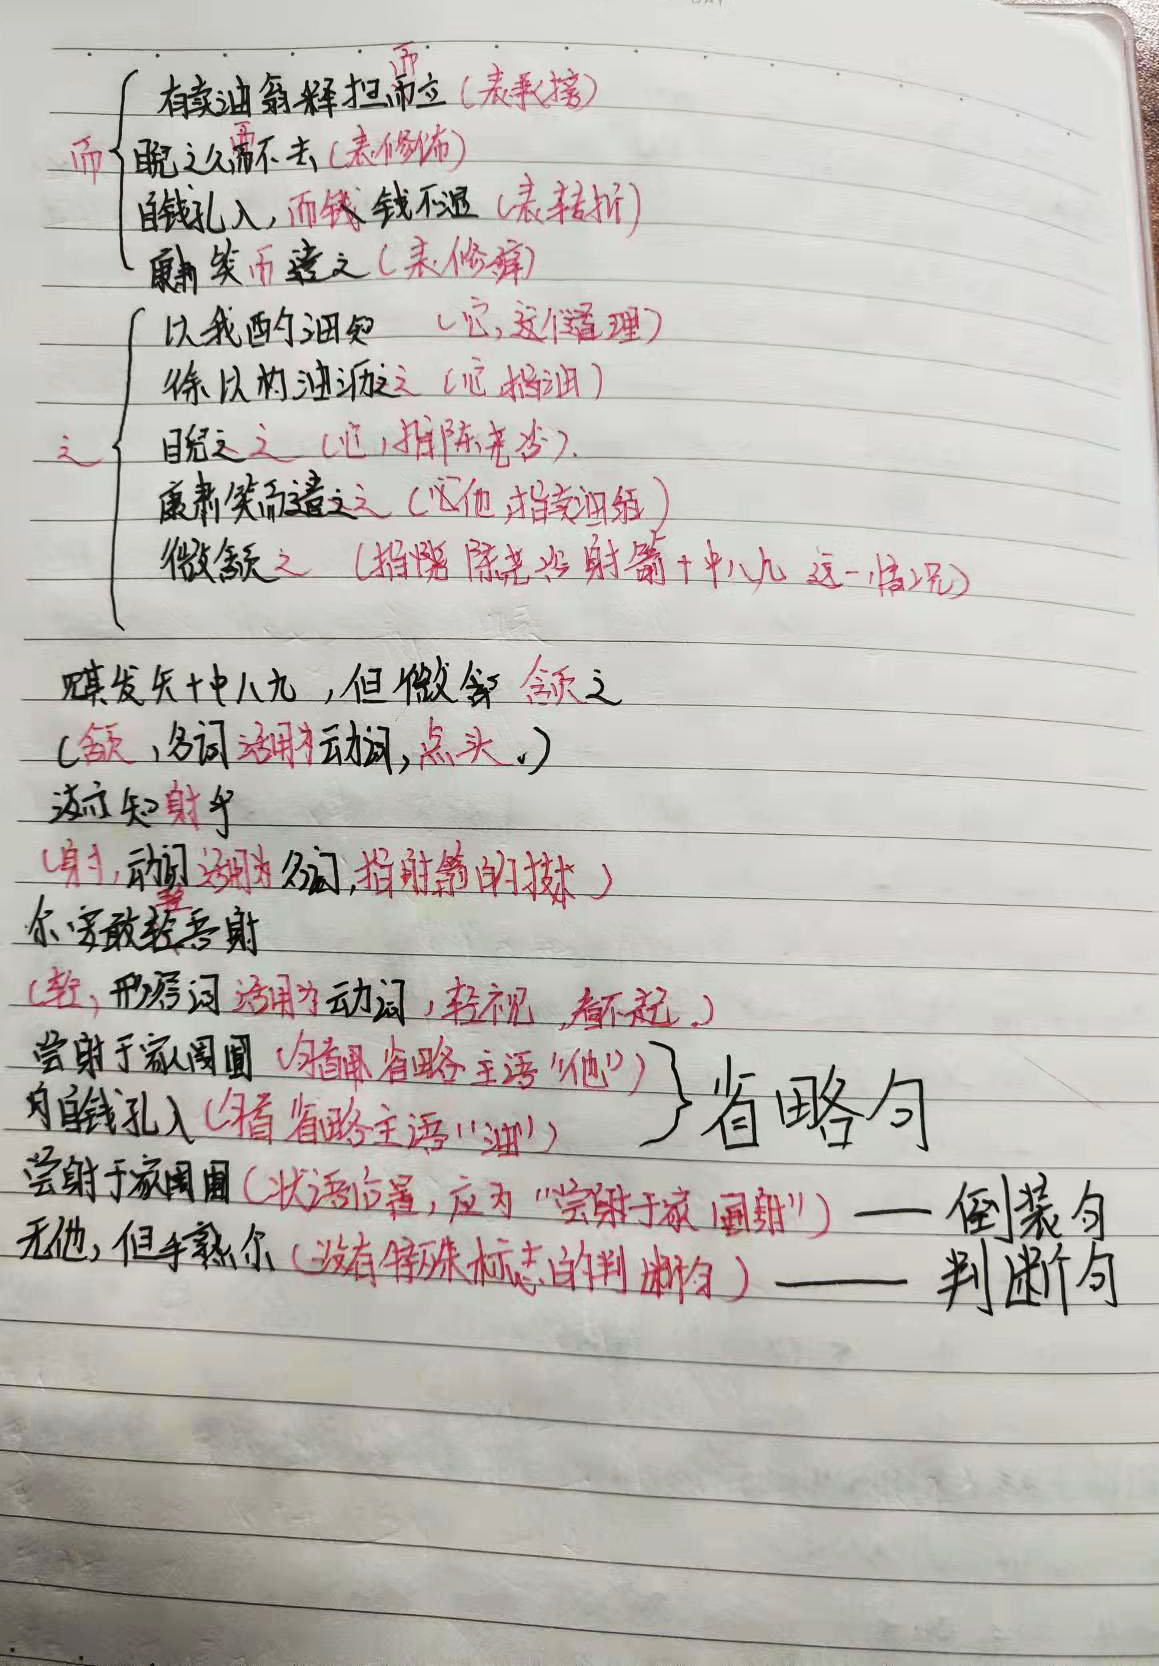 而 有卖油翁释担而立(表承接)
睨之久而不去(表修饰)
自钱孔入,而钱不湿(表转折)
康肃笑而遣之(表修辞)
以我酌油知 (它,这个道理)
之 徐以杓油沥之之(它,指油)
睨之之(它,指陈尧咨).
康肃笑而遣之之(他,指卖油翁)
微颔之 (指陈尧咨射箭十中八九这一情况)
见其发矢十中八九,但微颔之
(颔,名词活用为动词,点头.)
汝亦知射乎
(射,动词活用为名词,指射箭的技术)
尔安敢轻吾射
(轻,形容词活用为动词,轻视,看不起.)
尝射于家圃 (省略主语“他”)
自钱孔入(省略主语“油”) 省略句
尝射于家圃(状语后置,应为“尝射于家圃射”)——倒装句
无他,但手熟尔(没有特殊标志的判断句)——判断句